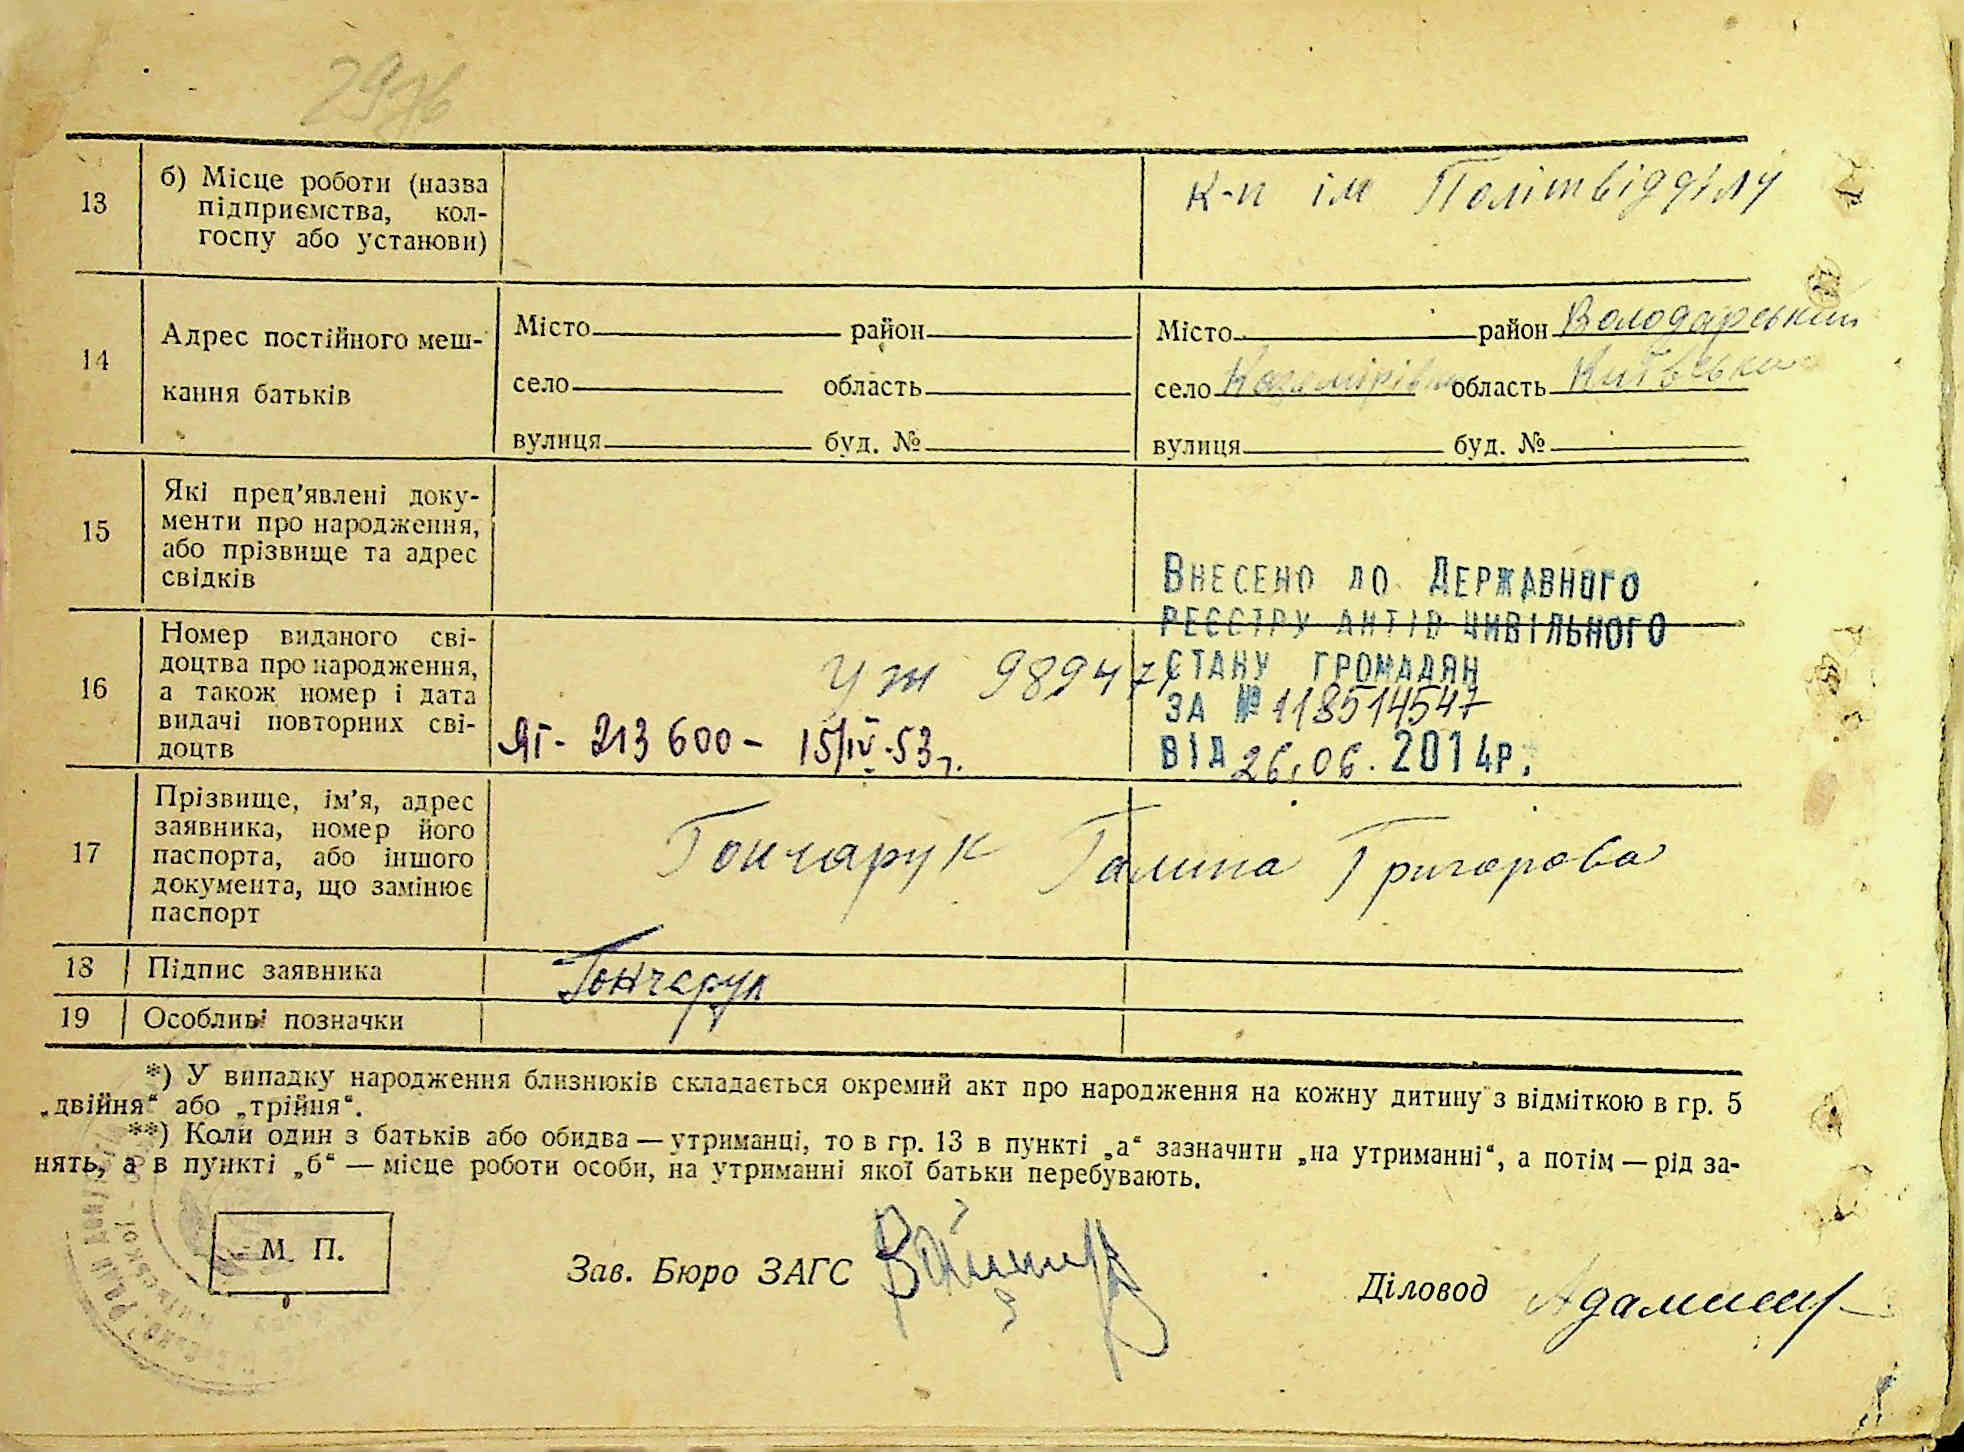 13
б) Місце роботи (назва
підприємства, кол-
госпу або установи)
к-п ім Політвідділу
14
Адрес постійного меш-
кання батьків
Місто район
село область
вулиця буд. №
Місто район Володарський
село область Київська
вулиця буд. №
15
Які пред'явлені доку-
менти про народження,
або прізвище та адрес
свідків
16
Номер виданого сві-
доцтва про народження,
а також номер і дата
видачі повторних сві-
доцтв
УЖ 98947
ЯГ- 213 600 - 15/IV-53 г.
Внесено до Державного
реєстру актів цивільного
стану громадян
за № 118514547
від 26.06.2014р.
17
Прізвище, ім'я, адрес
заявника, номер його
паспорта, або іншого
документа, що замінює
паспорт
Гончарук Галина Григорова
18
Підпис заявника
Гончарук
19
Особливі позначки
*) У випадку народження близнюків складається окремий акт про народження на кожну дитину з відміткою в гр. 5
„двійня“ або „трійня“.
**) Коли один з батьків або обидва — утриманці, то в гр. 13 в пункті „а“ зазначити „на утриманні“, а потім — рід за-
нять, а в пункті „б“ — місце роботи особи, на утриманні якої батьки перебувають.
М. П.
Зав. Бюро ЗАГС
Діловод